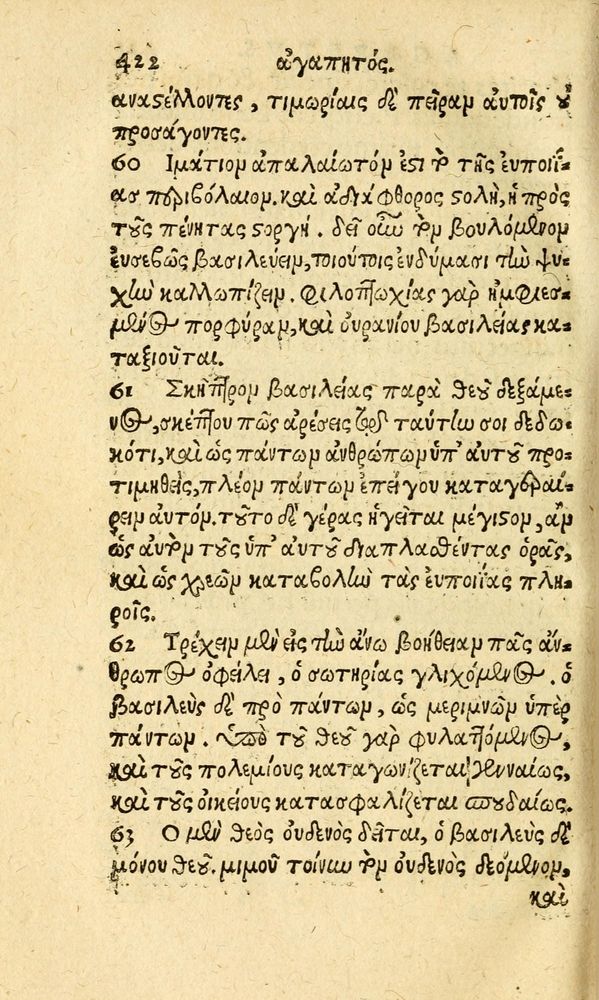 422 ἀγαπητός.
αναστέλλοντες, τιμωρίαις δὲ πεῖραν ἀυτοῖς οὐ
προσάγοντες.
60 Ιμάτιον απαλαίωτόν ἐστι τὸ τῆς ἐυποιΐ-
ας περιβόλαιον. καὶ αδιάφθορος στολὴ, ἡ πρὸς
τοὺς πένητας στοργή. δεῖ οὖν τὸν βουλόμενον
ἐυσεβῶς βασιλεύειν, τοιούτοις ἐνδύμασι τὴν ψυ-
χὴν καλλωπίζειν. φιλοπτωχίας γὰρ ἠμφιεσ-
μένος πορφύραν, καὶ ὀυρανίου βασιλείας κα-
ταξιοῦται.
61 Σκῆπτρον βασιλείας παρὰ θεοῦ δεξάμε-
νος, σκέπτου πῶς ἀρέσεις τῷ ταύτην σοι δεδω-
κότι, καὶ ὡς πάντων ἀνθρώπων ὑπ' αυτοῦ προ-
τιμηθεὶς, πλέον πάντων ἐπείγου καταγεραί-
ρειν αυτόν. τοῦτο δὲ γέρας ἡγεῖται μέγιστον, ἂν
ὡς αυτὸν τοὺς ὑπ' αυτοῦ διαπλασθέντας ὁρᾷς,
καὶ ὡς χρεῶν καταβολὴν τὰς ἐυποιΐας πλη-
ροῖς.
62 Τρέχειν μὲν εἰς τὴν ἄνω βοήθειαν πᾶς ἄν-
θρωπος ὀφείλει, ὁ σωτηρίας γλιχόμενος. ὁ
βασιλεὺς δὲ πρὸ πάντων, ὡς μεριμνῶν ὑπὲρ
πάντων. ὑπὸ τοῦ θεοῦ γὰρ φυλαττόμενος,
καὶ τοὺς πολεμίους καταγωνίζεται γενναίως,
καὶ τοὺς οἰκείους κατασφαλίζεται σπουδαίως.
63 Ο μὲν θεὸς ουδενὸς δεῖται, ὁ βασιλεὺς δὲ
μόνου θεοῦ. μιμοῦ τοίνυν τὸν ουδενὸς δεόμενον,
καὶ